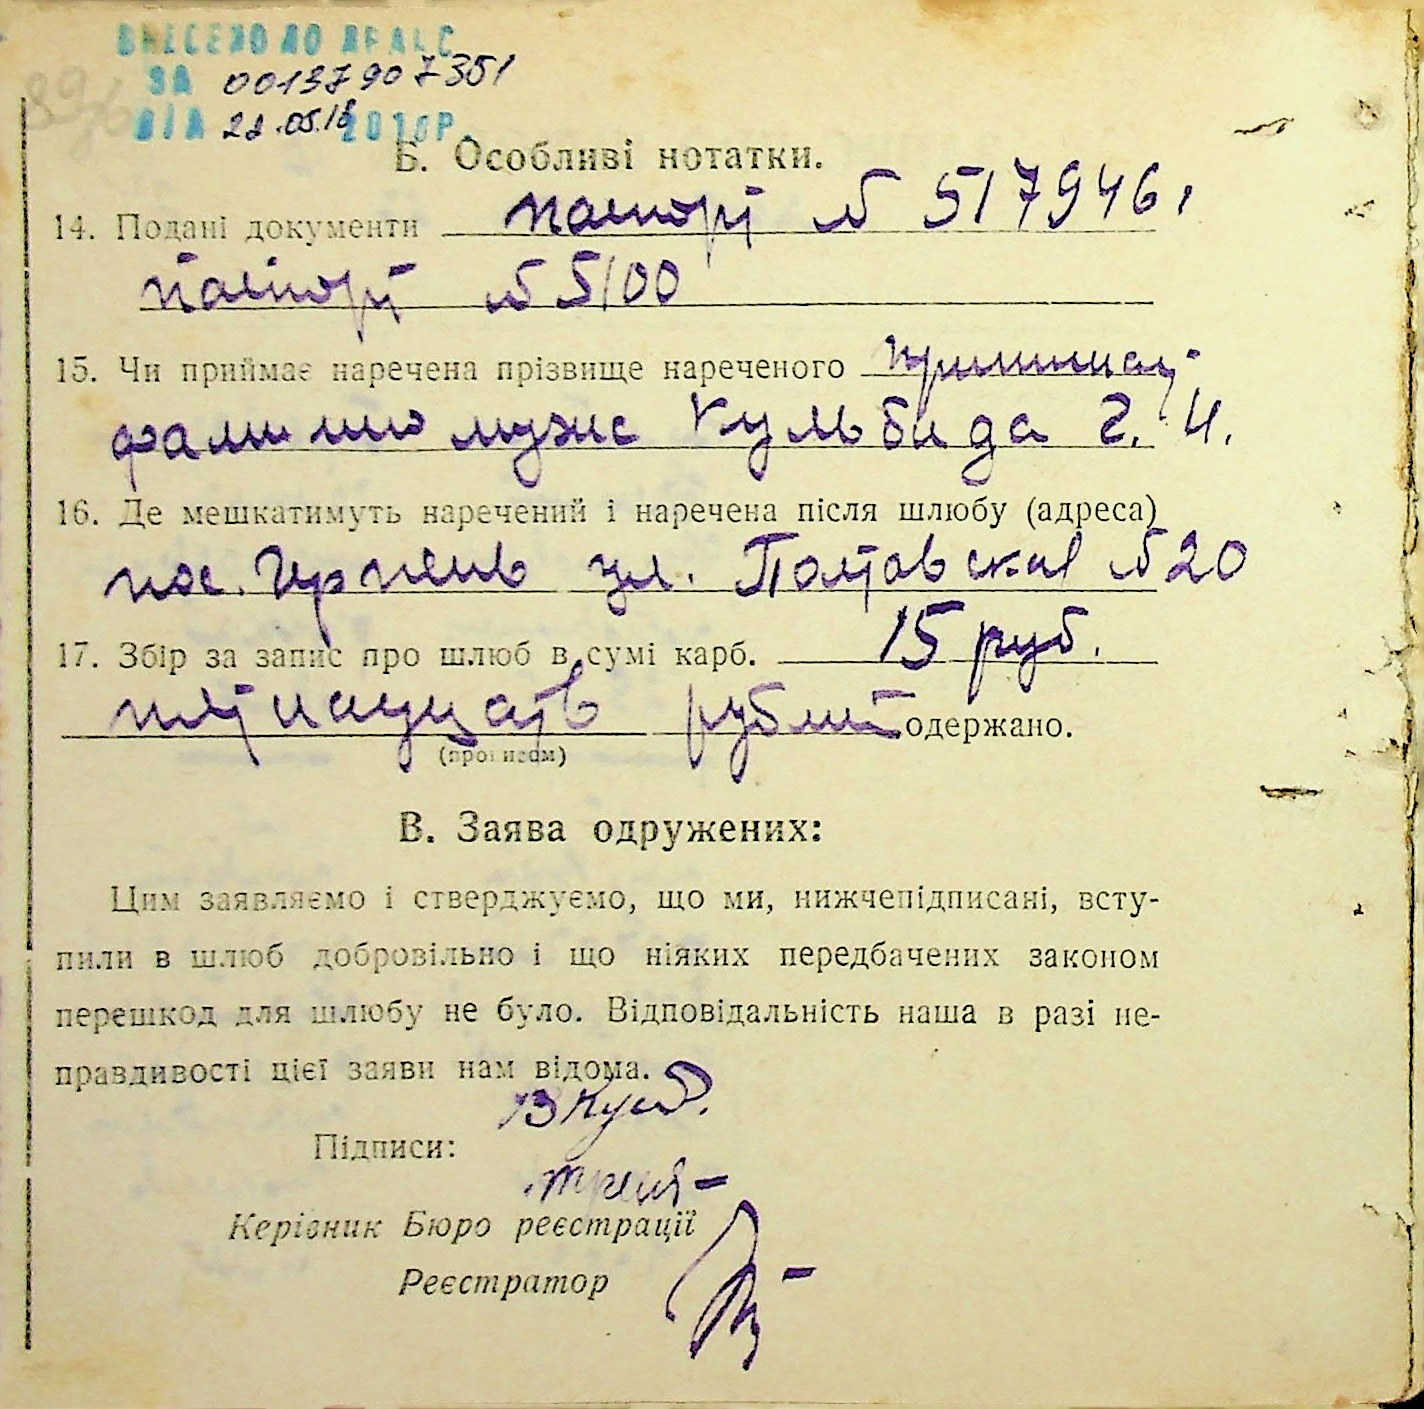 ВНЕСЕНО ДО ДРАЦС
ЗА 00137907351
ВІД 2018Р.
Б. Особливі нотатки.
14. Подані документи паспорт № 517946,
паспорт № 5100
15. Чи приймає наречена прізвище нареченого принимает
фамилию мужа Кульбида г. И.
16. Де мешкатимуть наречений і наречена після шлюбу (адреса)
пос. Ирпень ул. Полтавская № 20
17. Збір за запис про шлюб в сумі карб. 15 руб.
пятнадцать рублей одержано.
(прописом)
В. Заява одружених:
Цим заявляємо і стверджуємо, що ми, нижчепідписані, всту-
пили в шлюб добровільно і що ніяких передбачених законом
перешкод для шлюбу не було. Відповідальність наша в разі не-
правдивості цієї заяви нам відома.
Підписи:
Керівник Бюро реєстрації
Реєстратор